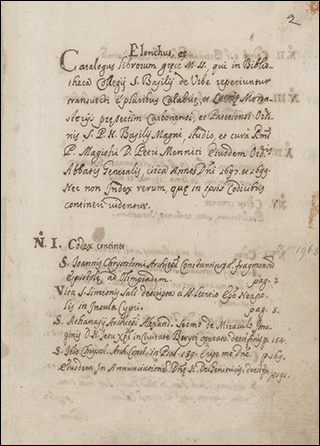 2
Elenchus, et
Catalogus librorum grece M.SS. qui in Biblio-
theca Collegij S. Basilij de Urbe reperiuntur
transvecti e pluribus Calabrie, et Mona-
sterijs presertim Carbonensi, et Patiensi Ordi-
nis S. P. N. Basilij Magni studio, et cura
P. Magistri D. Petri Menniti Eiusdem Ord.
Abbatis Generalis circa Annos Dni 1697. et 1699.
Nec non Index rerum, que in ipsis Codicibus
contineri videntur.
N. I. Codex continet.
S. Joannis Chrysostomi Archiepi Constantinop. fragmentum
Epistole, ad Olimpiadem. pag. 1
Vita S. Simeonis Sali descripta a Leontio Epo Neapo-
lis in Insula Cypri. pag. 5.
S. Athanasij Archiepi Alexand. Sermo de Miraculo Ima-
ginis D. N. Jesu Xpi in Civitate Beryti p. 154.
S. Jo: Chrysost. Archi in Psal. 139. Eripe me Dne. p. 169.
Eiusdem in Annunciatione p. 191.